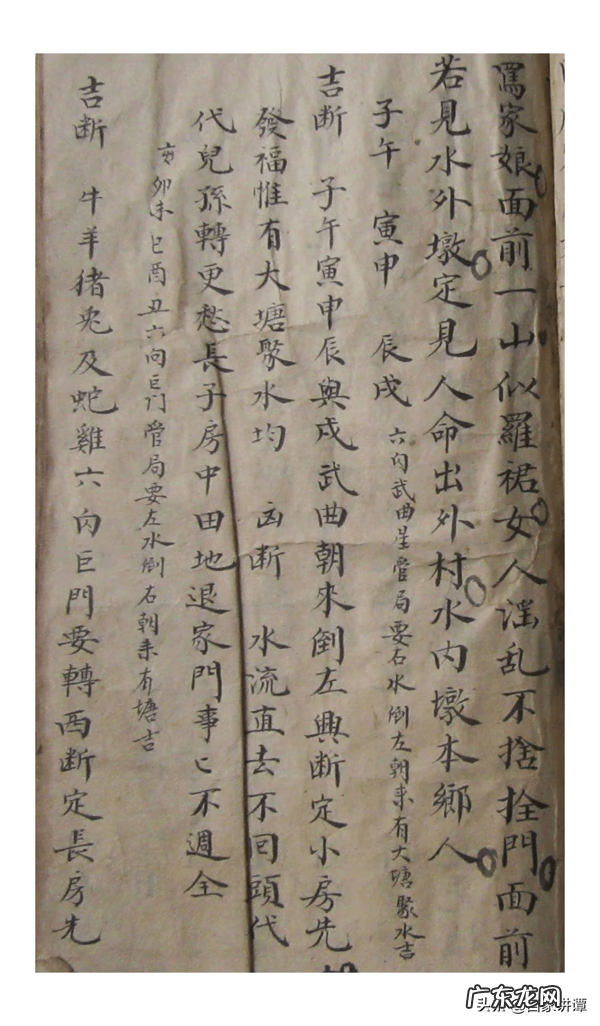 罵家娘面前一山似羅裙女人滛乱不捨拴門面前
若見水外墩定見人命出外村水内墩本鄉人
子午 寅申 辰戌 六向武曲星管局要右水倒左朝来有大塘聚水吉
吉断 子午寅申辰與戌武曲朝來倒左興断定小房先
發福惟有大塘聚水均 凶断 水流直去不回頭代
代兒孫轉更愁長子房中田地退家門事匕不週全
亥卯未巳酉丑六向巨门管局要左水倒右朝来有塘吉
吉断 牛羊猪兎及蛇雞六向巨門要轉西断定長房先
广东龙网